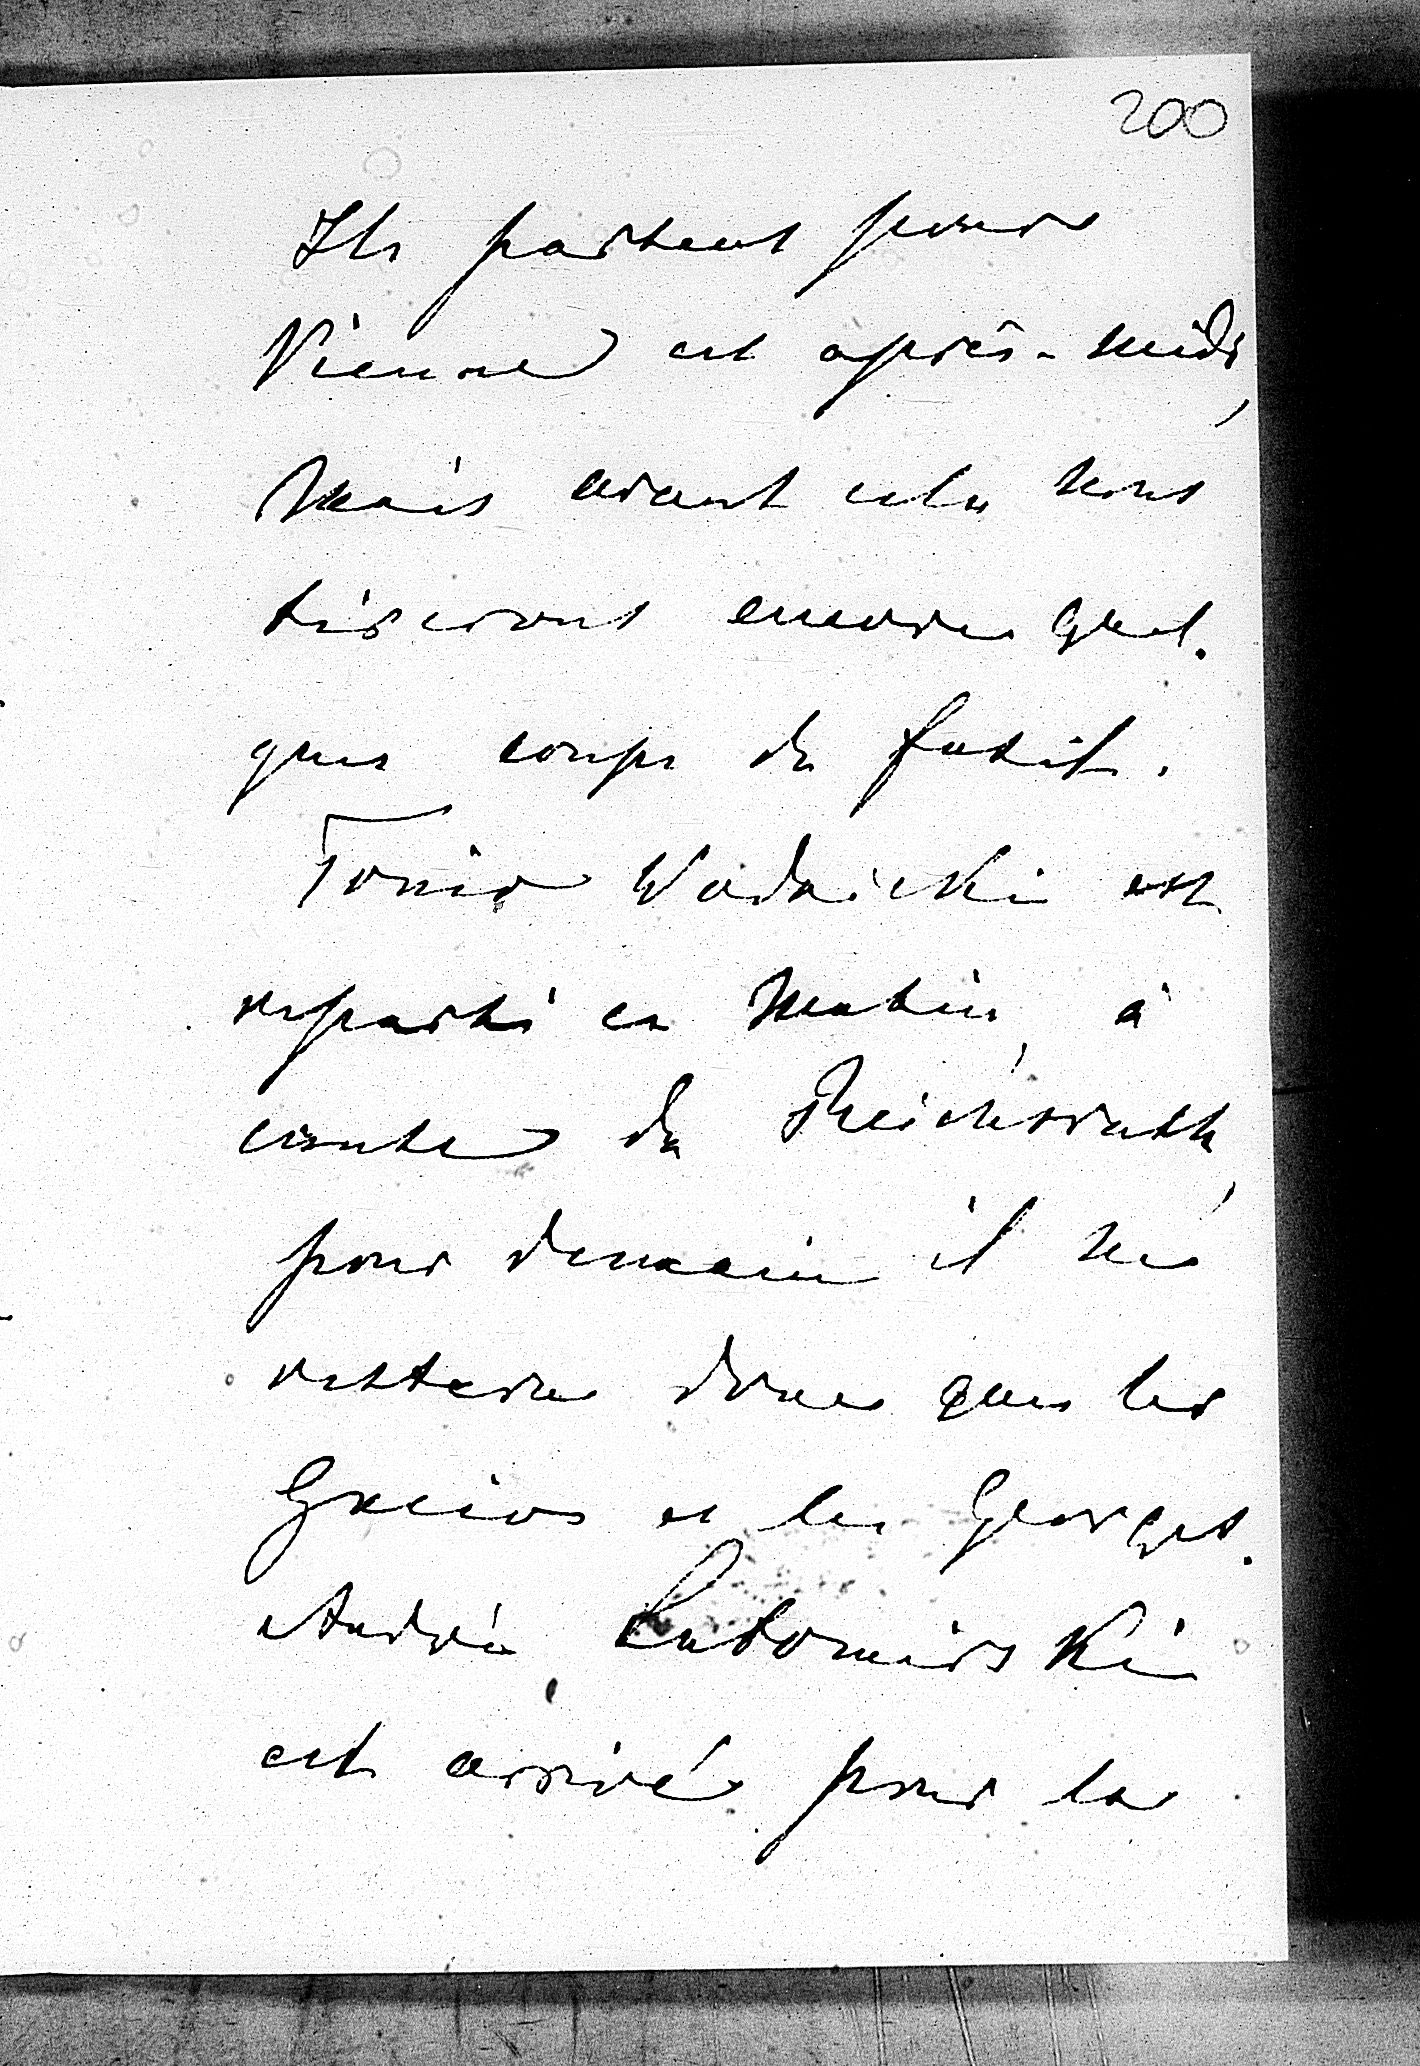 200
Ils partent pour
Vienne cet après-midi,
mais avant cela nous
tirerons encore quel-
ques coups de fusil.
Tonio Wodzicki est
reparti ce matin, à
cause du Reichsrath,
pour demain il ne
restera donc que les
et les Georges.
André Lubomirski
est arrivé pour la